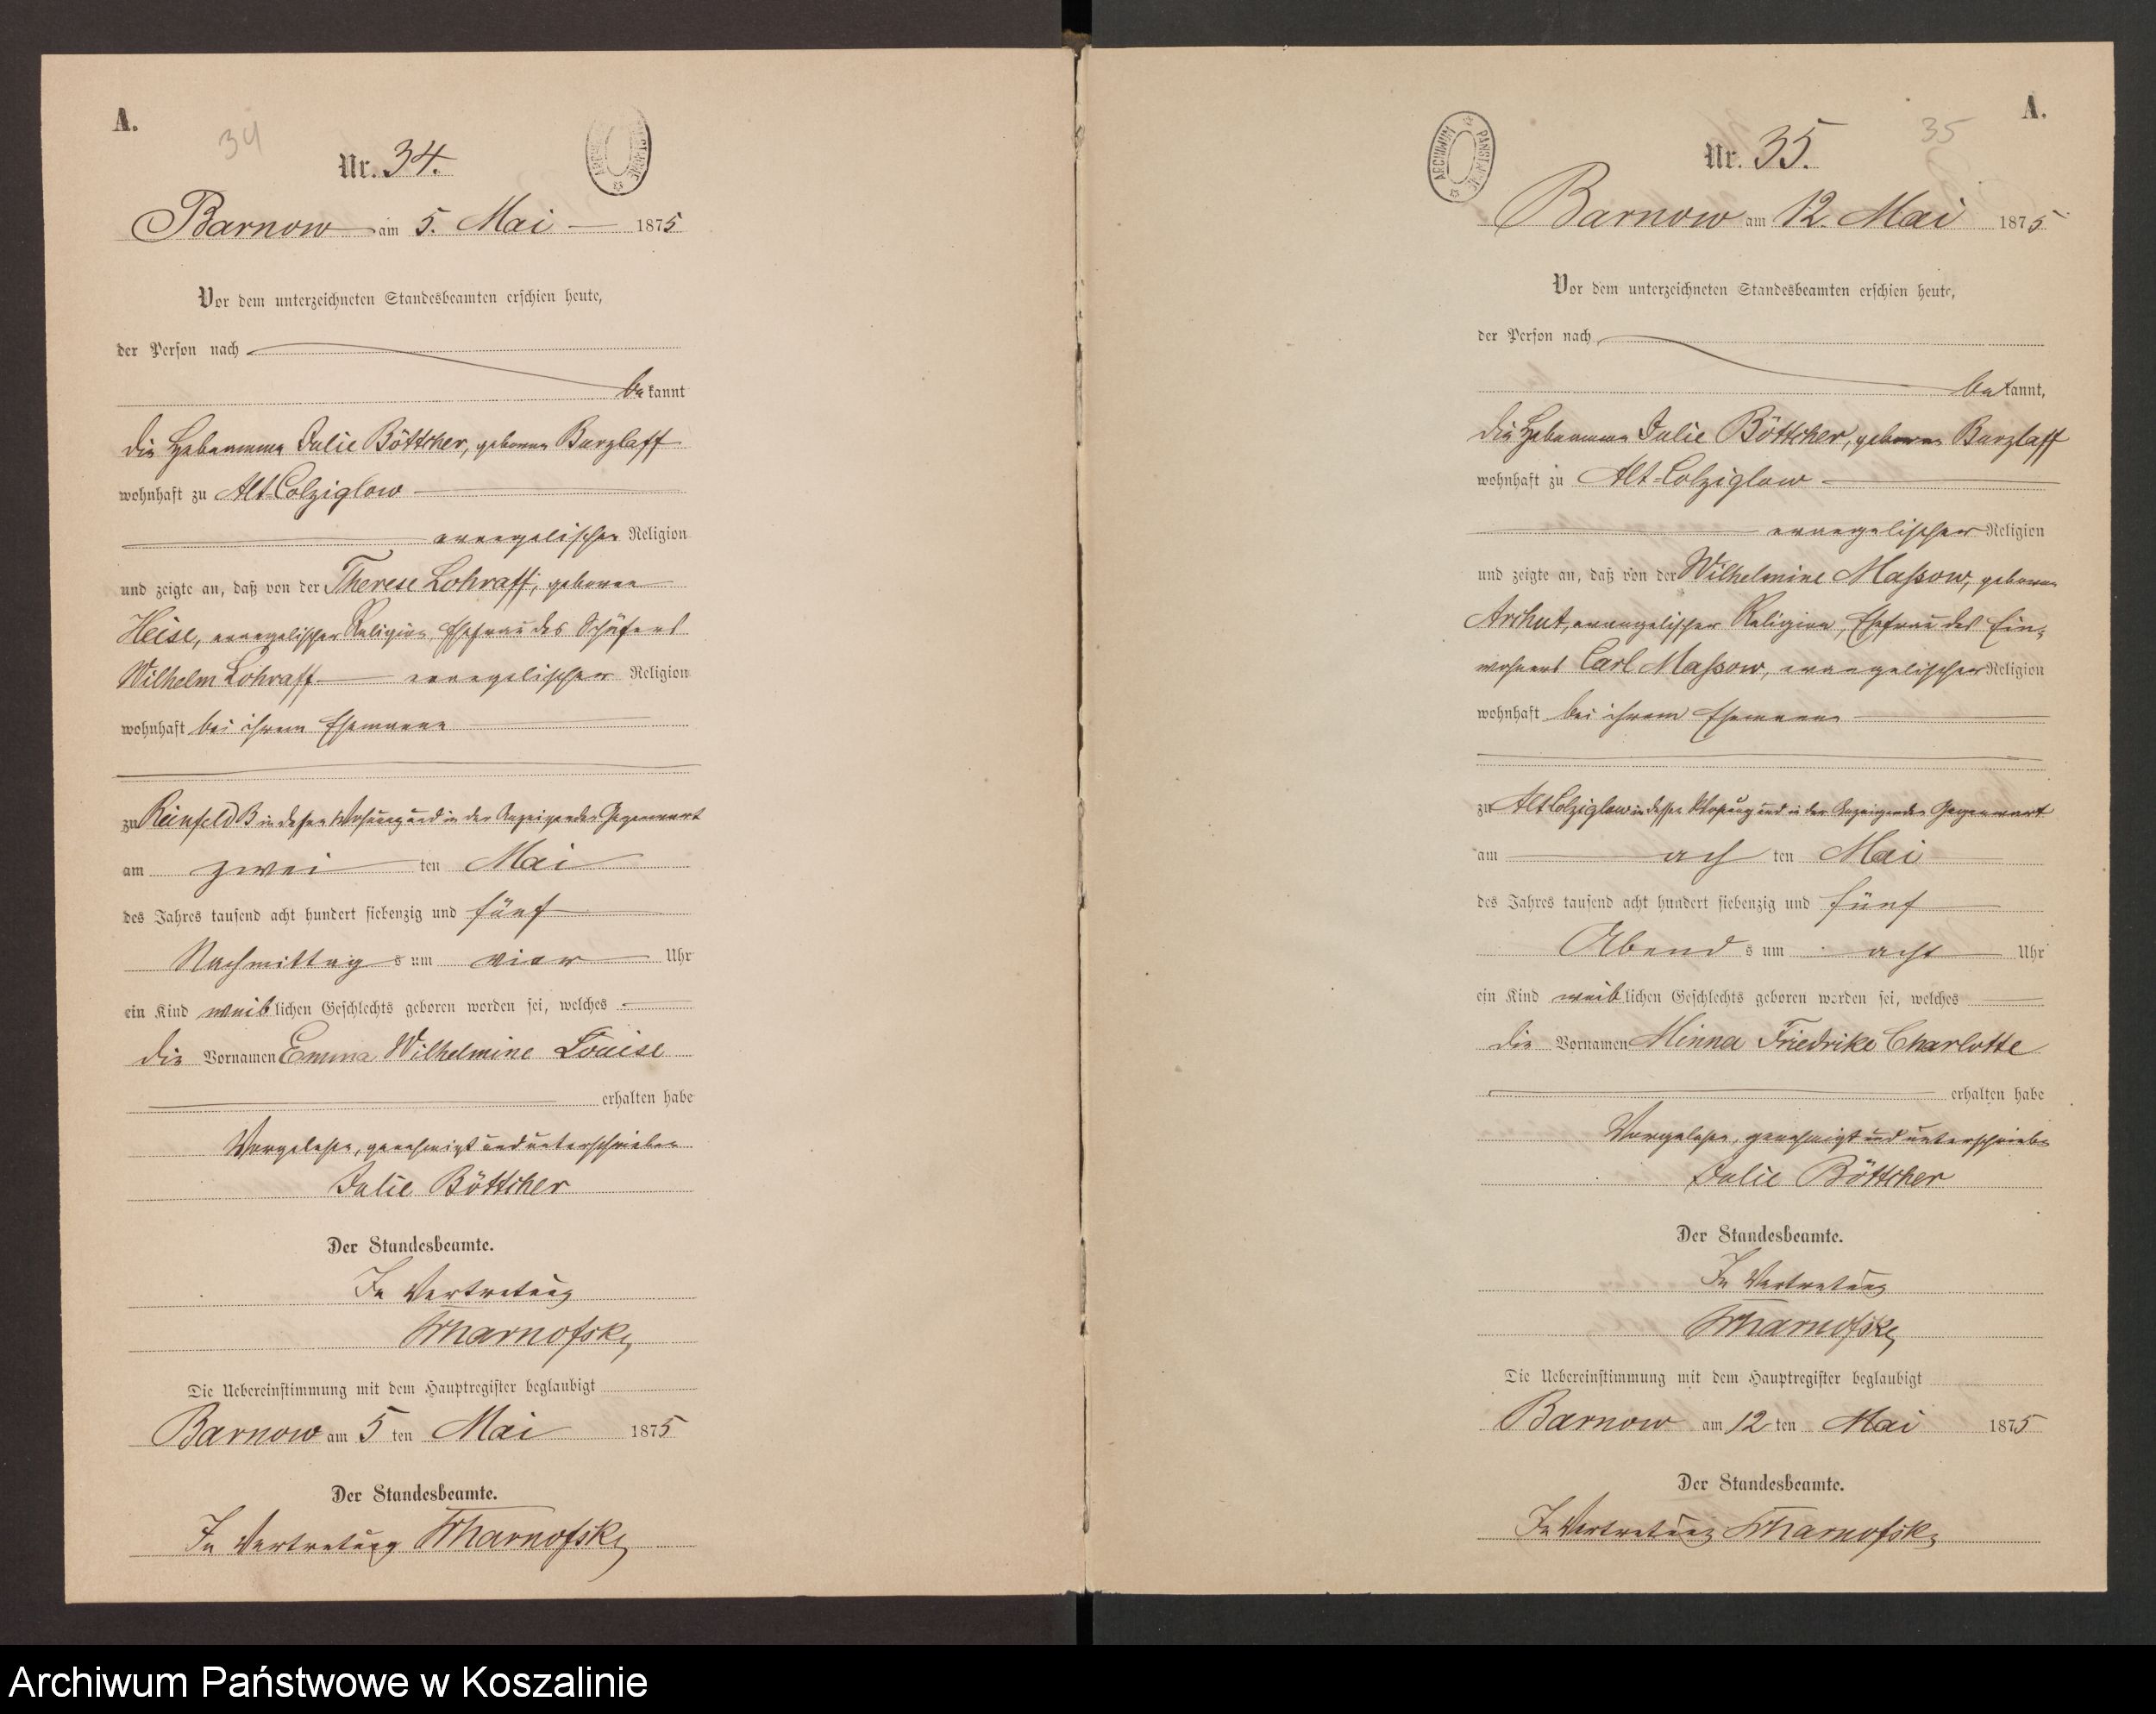 A.
34
Nr. 34.
Barnow am 5. Mai 1875
Vor dem unterzeichneten Standesbeamten erschien heute,
der Person nach
bekannt
die Hebamme Julie Böttcher, geborene Burzlaff
wohnhaft zu Alt-Colziglow
evangelischer Religion
und zeigte an, daß von der Therese Lohraff, geborene
Heise, evangelischer Religion, Ehefrau des Schäfers
Wilhelm Lohraff evangelischer Religion
wohnhaft bei ihrem Ehemanne
zu Reinfeld B in dessen Wohnung und in der Anzeigenden Gegenwart
am zwei ten Mai
des Jahres tausend acht hundert siebenzig und fünf
Nachmittag s um vier Uhr
ein Kind weiblichen Geschlechts geboren worden sei, welches
die Vornamen Emma Wilhelmine Louise
erhalten habe
Vorgelesen, genehmigt und unterschrieben
Julie Böttcher
Der Standesbeamte.
In Vertretung
Die Uebereinstimmung mit dem Hauptregister beglaubigt
Barnow am 5 ten Mai 1875
Der Standesbeamte.
In Vertretung
ARCHIWUM PAŃSTWOWE
35
A.
Nr. 35.
Barnow am 12. Mai 1875
Vor dem unterzeichneten Standesbeamten erschien heute,
der Person nach
bekannt,
die Hebamme Julie Böttcher, geborene Burzlaff
wohnhaft zu Alt-Colziglow
evangelischer Religion
und zeigte an, daß von der Wilhelmine Maßow, geborene
Archut, evangelischer Religion, Ehefrau des Ein-
wohners Carl Maßow, evangelischer Religion
wohnhaft bei ihrem Ehemanne
zu Alt Colziglow in dessen Wohnung und in der Anzeigenden Gegenwart
am ach ten Mai
des Jahres tausend acht hundert siebenzig und fünf
Abend s um acht Uhr
ein Kind weiblichen Geschlechts geboren worden sei, welches
die Vornamen Minna Friedrike Charlotte
erhalten habe
Vorgelesen, genehmigt und unterschrieben
Julie Böttcher
Der Standesbeamte.
In Vertretung
Die Uebereinstimmung mit dem Hauptregister beglaubigt
Barnow am 12 ten Mai 1875
Der Standesbeamte.
In Vertretung
Archiwum Państwowe w Koszalinie